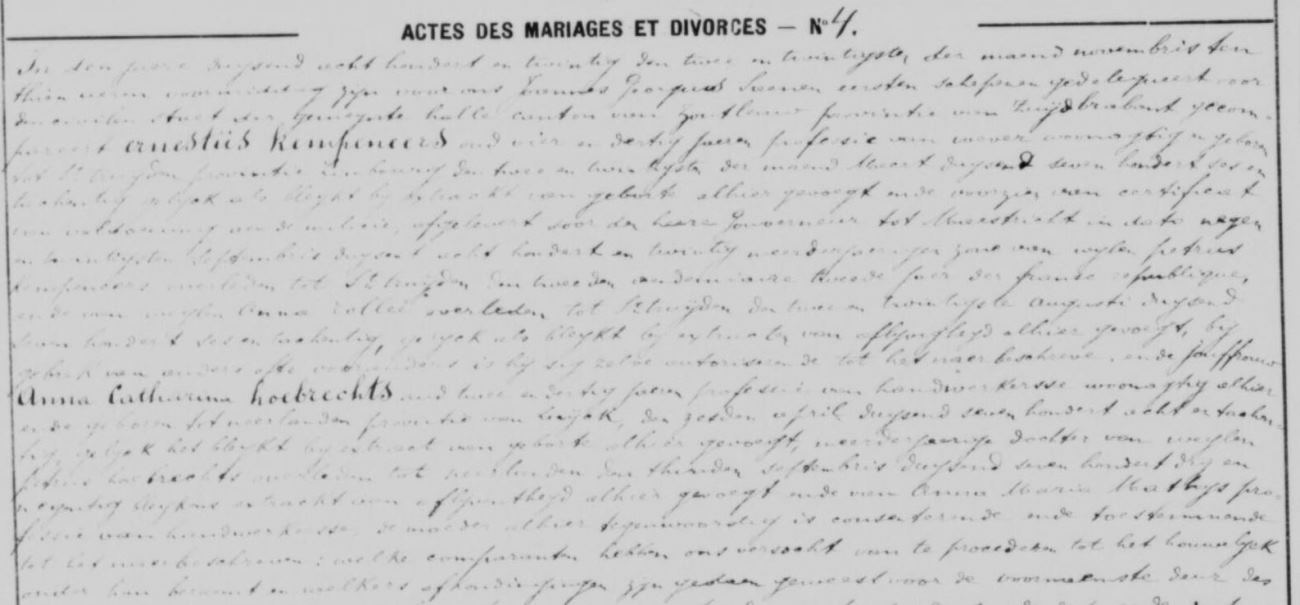 ACTES DES MARIAGES ET DIVORCES — No 4.
In den jaere duysend acht hondert en twintig den twee en twintigsten der maend novembris ten
thien ueren voormiddag zijn voor ons Joannes Georgius Swenen eersten schepenen gedelegueert voor
den civilen staet der gemeynte halle canton van Zoutleeuw provintie van Zuijdbrabant gecom-
pareert ernestiis Kempeneers oud vier en dertig jaeren professie van wever woonagtig en geboren
tot St truijden provintie limbourg den twee en twintigsten der maend Meert duysend seven hondert ses en
tachentig gelijk als bleykt bij extrackt van geborte alhier gevoegt ende voorzien van certificaet
van voldoening aen de militie, afgelevert door den heere gouverneur tot Maestricht in dato negen
en twintigsten septembris duysent acht hondert en twintig meerderjaeriger zone van wylen petrus
kempeneers overleden tot St truijden den tweeden vendemiaire tweede jaer der franse republique,
ende van weylen Anna collei overleden tot St truijden den twee en twintigste augusti duysend
seven hondert ses en tachentig, gelyck als bleykt by extracten van aflyvigheyd alhier gevoegt, by
gebrek van anders is hy sig zelve autoriserende tot het naer beschreve, ende jouffrouw
Anna Catharina hoebrechts oud twee en dertig jaeren professie van handwerkersse woonagtig alhier
ende geboren tot neerlanden provintie van Luijck, den zesden april duysend seven hondert acht en tachen-
tig, gelyck het bleykt by extract van geborte alhier gevoegt, meerderjaerige dochter van weylen
petrus hoebrechts overleden tot neerlanden den thienden septembris duysend seven hondert dry en
negentig blykens extrackt van aflyvigheyd alhier gevoegt ende van Anna Maria Mathys pro-
fessie van handwerkersse, de moeder alhier tegenwoordig is consenterende ende toestemmende
tot het naerbeschreven: welke comparanten hebben ons versocht van te procederen tot het houwelyk
onder hun beraemt en welkers afkondigingen zyn gedaen geweest voor de voornaemste deur des